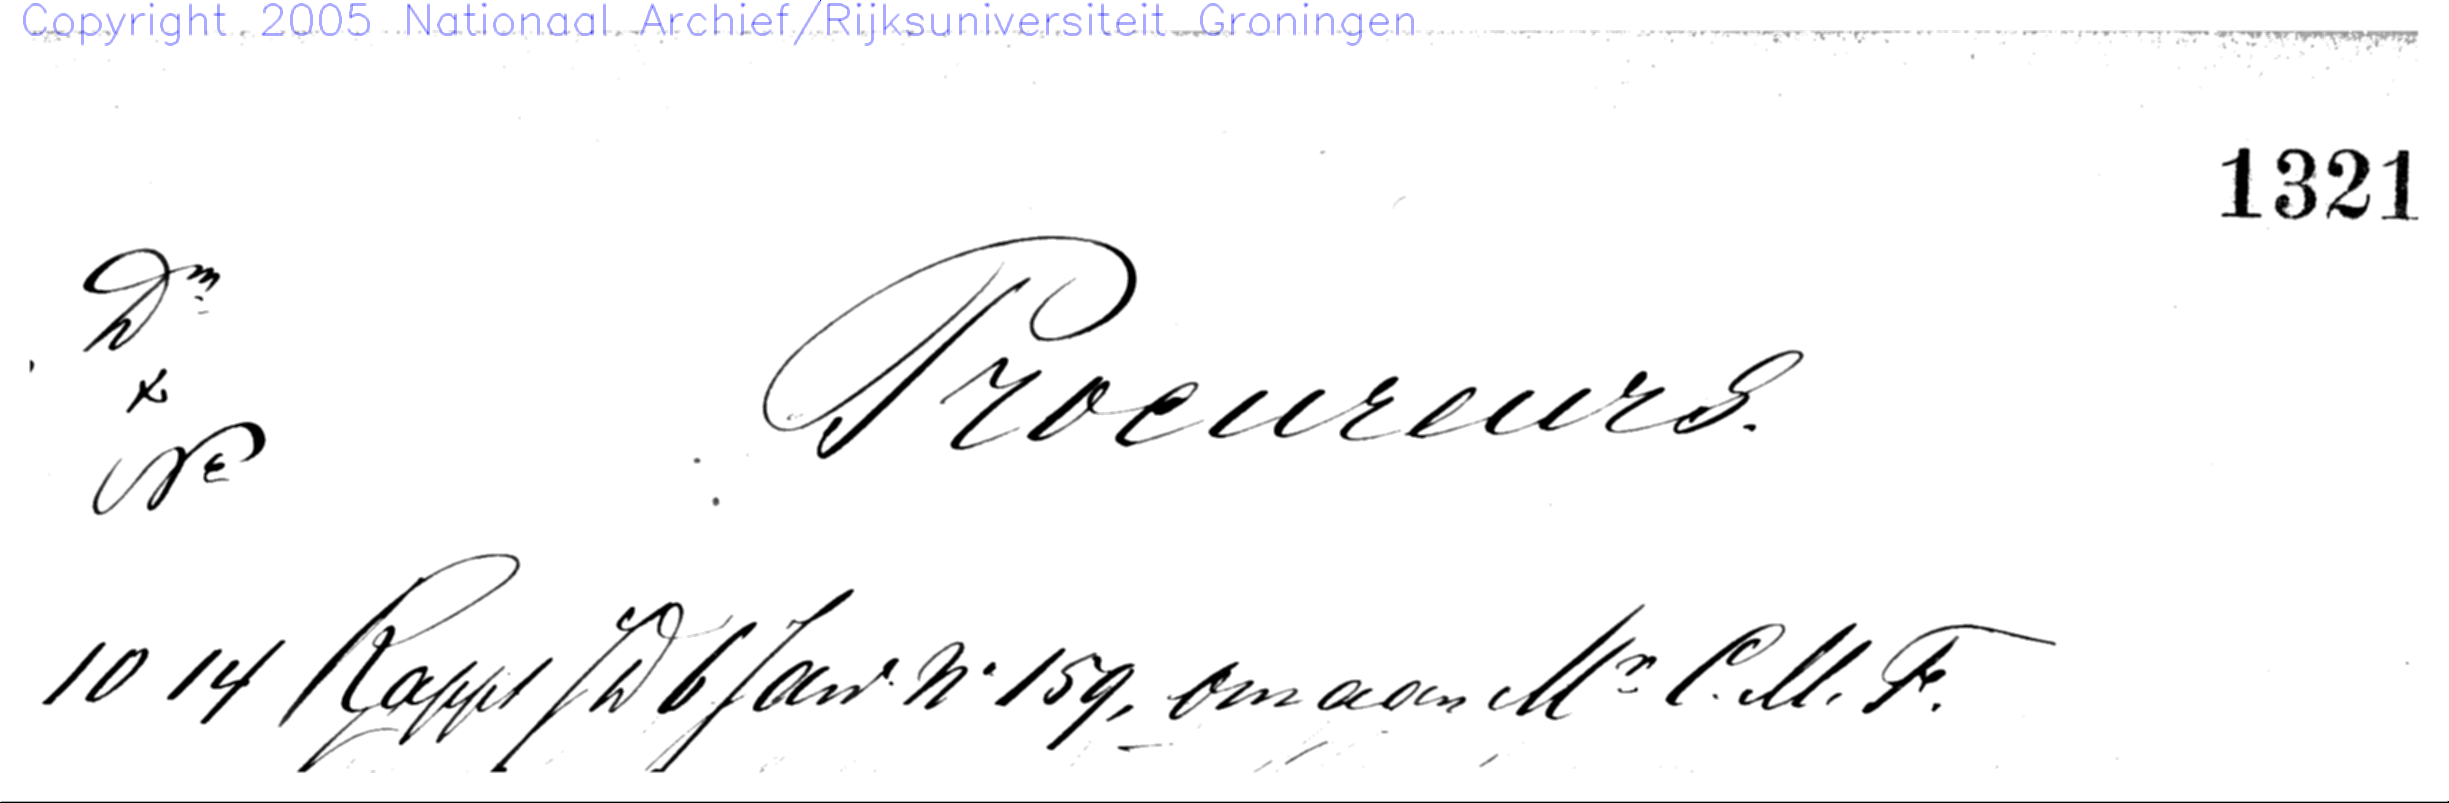 Copyright 2005 Nationaal Archief/Rijksuniversiteit Groningen
1321
Dm
&
No
Procureurs.
10 14 Rappt JW 6 Janr. No. 159, om aan Mr. C. M. F.